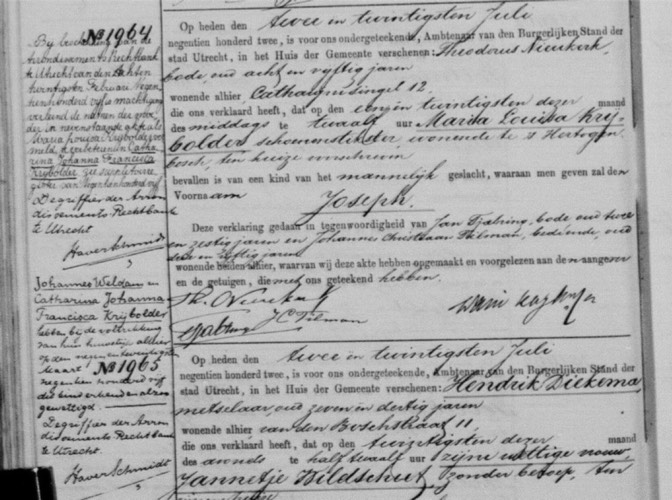 № 1964
Bij beschikking van de
Arrondissements Rechtbank
te Utrecht van den achten
twintigsten Februari Negen
tienhonderd vijf is machtiging
verleend de namen der moe
der in nevenstaande akte als
Maria Louisa Krijbolder ver
meld, te verbeteren in Catha
rina Johanna Francisca
Krijbolder
De griffier der Arron
dissements Rechtbank
te Utrecht
Haverschmidt
Johannes Weldam en
Catharina Johanna
Francisca Krijbolder
hebben bij de voltrekking
van hun huwelijk alhier
op den negen en twintigsten
Maart
negentien honderd vijf
dit kind erkend en alzoo
gewettigd.
De griffier der Arron
dissements Rechtbank
te Utrecht.
Haverschmidt
Op heden den twee en twintigsten Juli
negentien honderd twee, is voor ons ondergeteekende, Ambtenaar van den Burgerlijken Stand der
stad Utrecht, in het Huis der Gemeente verschenen: Theodorus Nieuwkerk,
bode, oud acht en vijftig jaren
wonende alhier, Catharijnesingel 12,
die ons verklaard heeft, dat op den een en twintigsten dezer maand
des middags te twaalf uur Maria Louisa Krij-
bolder, schoonmaakster, wonende te 's Hertogen
bosch, ten huize voorschreven
bevallen is van een kind van het mannelijk geslacht, waaraan men geven zal den
Voornaam Joseph.
Deze verklaring gedaan in tegenwoordigheid van Jan Tjabring, bode, oud twee
en zestig jaren en Johannes Christiaan Tilman, bediende, oud
en vijftig jaren
wonende beiden alhier, waarvan wij deze akte hebben opgemaakt en voorgelezen aan den aangever
en de getuigen, die met ons geteekend hebben.
Th. Nieuwkerk
Tjabring J C Tilman
№ 1965
Op heden den twee en twintigsten Juli
negentien honderd twee, is voor ons ondergeteekende, Ambtenaar van den Burgerlijken Stand der
stad Utrecht, in het Huis der Gemeente verschenen: Hendrik Diekema,
metselaar, oud zeven en dertig jaren
wonende alhier van den Boschstraat 11,
die ons verklaard heeft, dat op den twintigsten dezer maand
des avonds te half twaalf uur zijne wettige vrouw,
Jannetje Wildschut, zonder beroep, ten